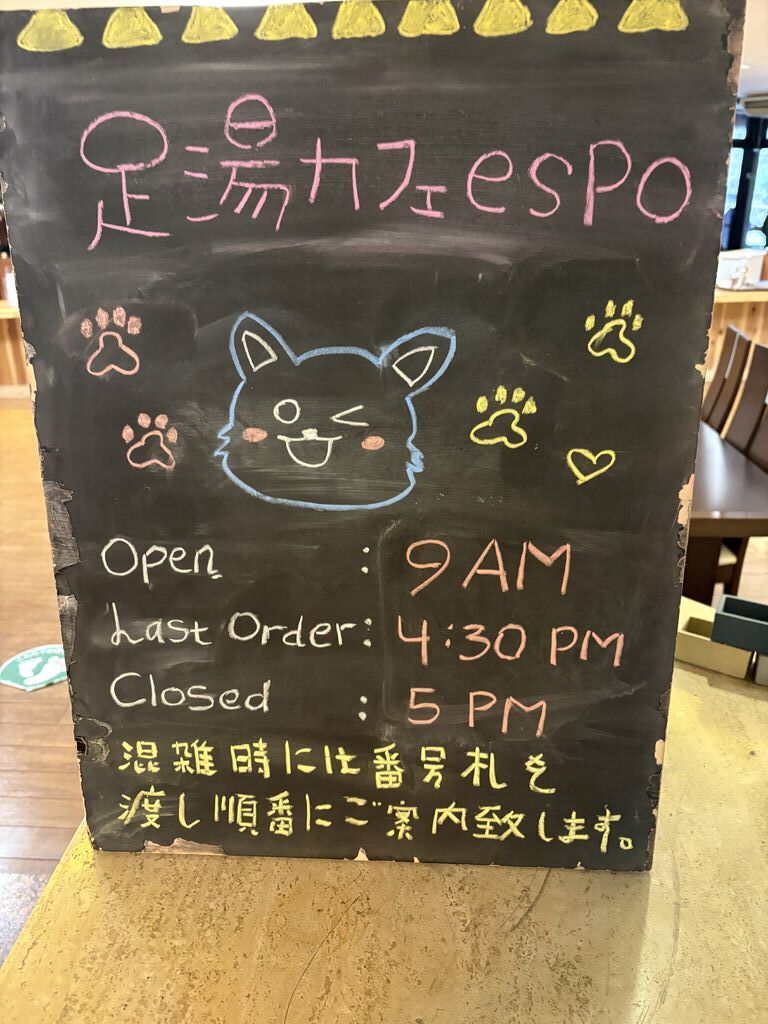 足湯カフェespo
Open : 9 AM
Last Order: 4:30 PM
Closed : 5 PM
混雑時には番号札を
渡し順番にご案内致します。